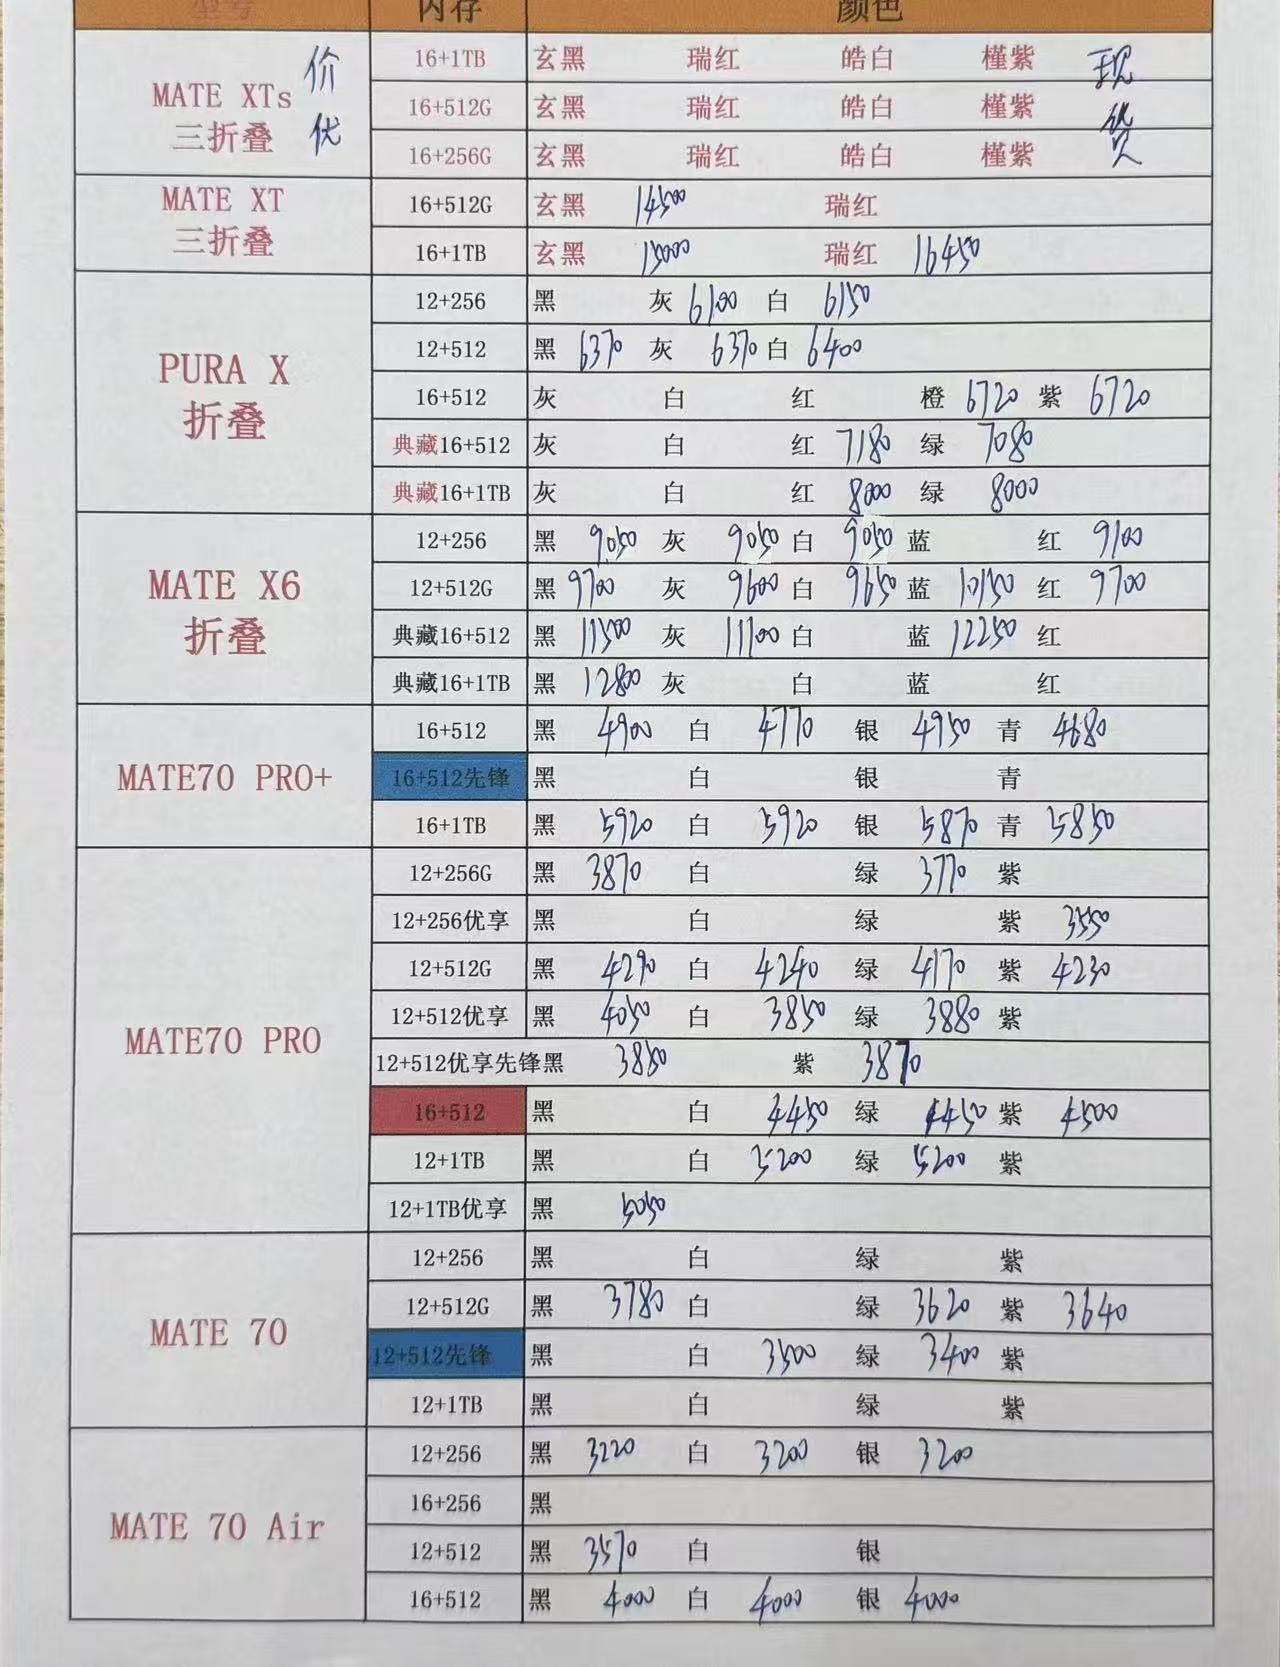 型号 内存 颜色
MATE XTs 三折叠 价优 16+1TB 玄黑 瑞红 皓白 槿紫 现货
16+512G 玄黑 瑞红 皓白 槿紫
16+256G 玄黑 瑞红 皓白 槿紫
MATE XT 三折叠 16+512G 玄黑 14500 瑞红
16+1TB 玄黑 15000 瑞红 16450
PURA X 折叠 12+256 黑 灰 6100 白 6150
12+512 黑 6370 灰 6370 白 6400
16+512 灰 白 红 橙 6720 紫 6720
典藏16+512 灰 白 红 7180 绿 7080
典藏16+1TB 灰 白 红 8000 绿 8000
MATE X6 折叠 12+256 黑 9050 灰 9050 白 9050 蓝 红 9100
12+512G 黑 9700 灰 9600 白 9650 蓝 10150 红 9700
典藏16+512 黑 11500 灰 11100 白 蓝 12250 红
典藏16+1TB 黑 12800 灰 白 蓝 红
MATE70 PRO+ 16+512 黑 4900 白 4770 银 4950 青 4680
16+512先锋 黑 白 银 青
16+1TB 黑 5920 白 5920 银 5870 青 5850
MATE70 PRO 12+256G 黑 3870 白 绿 3770 紫
12+256优享 黑 白 绿 紫 3550
12+512G 黑 4290 白 4240 绿 4170 紫 4230
12+512优享 黑 4050 白 3850 绿 3880 紫
12+512优享先锋黑 3850 紫 3870
16+512 黑 白 4450 绿 4450 紫 4500
12+1TB 黑 白 5200 绿 5200 紫
12+1TB优享 黑 5050
MATE 70 12+256 黑 白 绿 紫
12+512G 黑 3780 白 绿 3620 紫 3640
12+512先锋 黑 白 3500 绿 3400 紫
12+1TB 黑 白 绿 紫
MATE 70 Air 12+256 黑 3220 白 3200 银 3200
16+256 黑
12+512 黑 3570 白 银
16+512 黑 4000 白 4000 银 4000